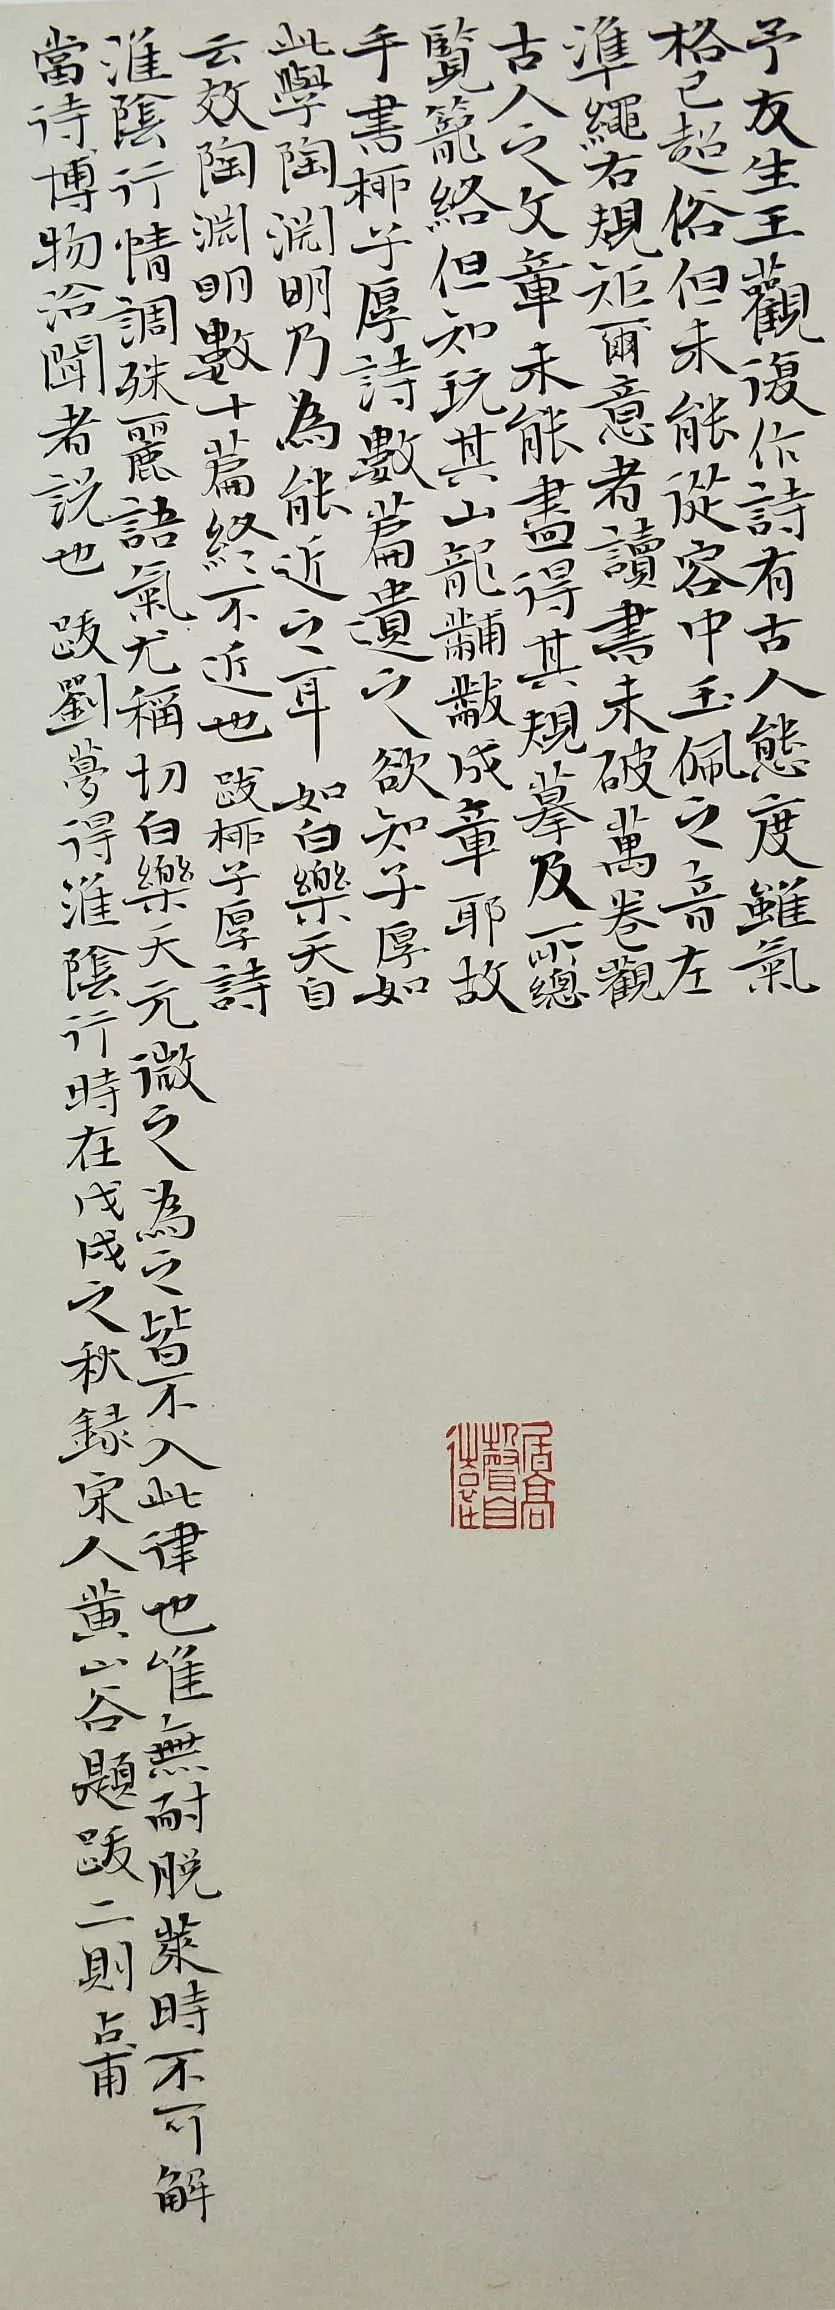 予友生王觀復作詩有古人態度雖氣
格已超俗但未能從容中玉佩之音左
準繩右規矩爾意者讀書未破萬卷觀
古人之文章未能盡得其規摹及所總
覽籠絡但知玩其山龍黼黻成章耶故
手書柳子厚詩數篇遺之欲知子厚如
此學陶淵明乃為能近之耳 如白樂天自
云效陶淵明數十篇終不近也 跋柳子厚詩
淮陰行情調殊麗語氣尤穩切白樂天元微之為之皆不入此律也唯無耐脫萊時不可解
當待博物洽聞者說也 跋劉夢得淮陰行時在戊戌之秋錄宋人黃山谷題跋二則占甫
居高聲自遠